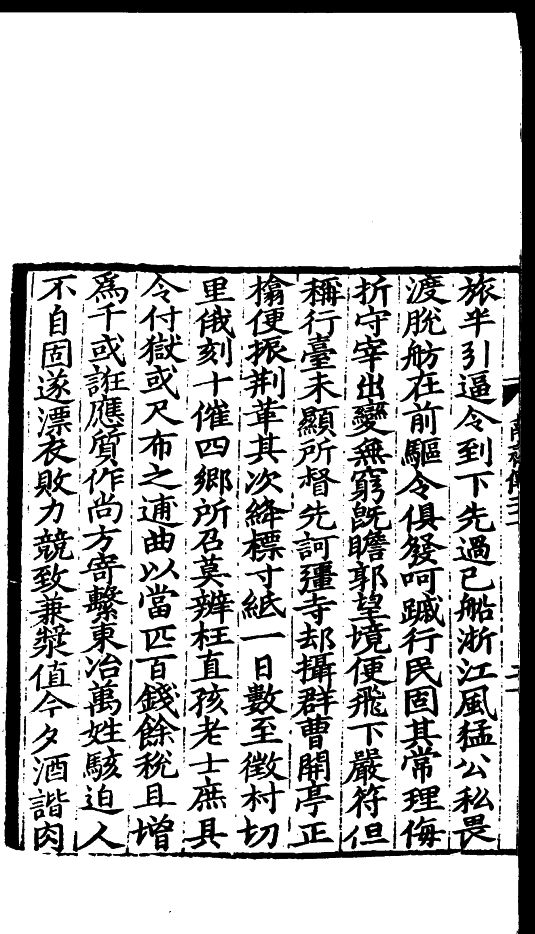 旅半引逼令到下先過己船浙江風猛公私畏
渡脫舫在前驅令俱發呵蹴行民固其常理侮
折守宰出變無窮旣瞻郭望境便飛下嚴符但
稱行臺未顯所督先訶彊寺却攝群曹開亭正
㩉便振荆革其次絳標寸紙一日數至徵村切
里俄刻十催四鄉所召莫辨枉直孩老士庶具
令付獄或尺布之逋曲以當匹百錢餘稅且增
爲千或誑應質作尚方寄繫東冶萬姓駭迫人
不自固遂漂衣敗力競致兼漿值今夕酒諧肉